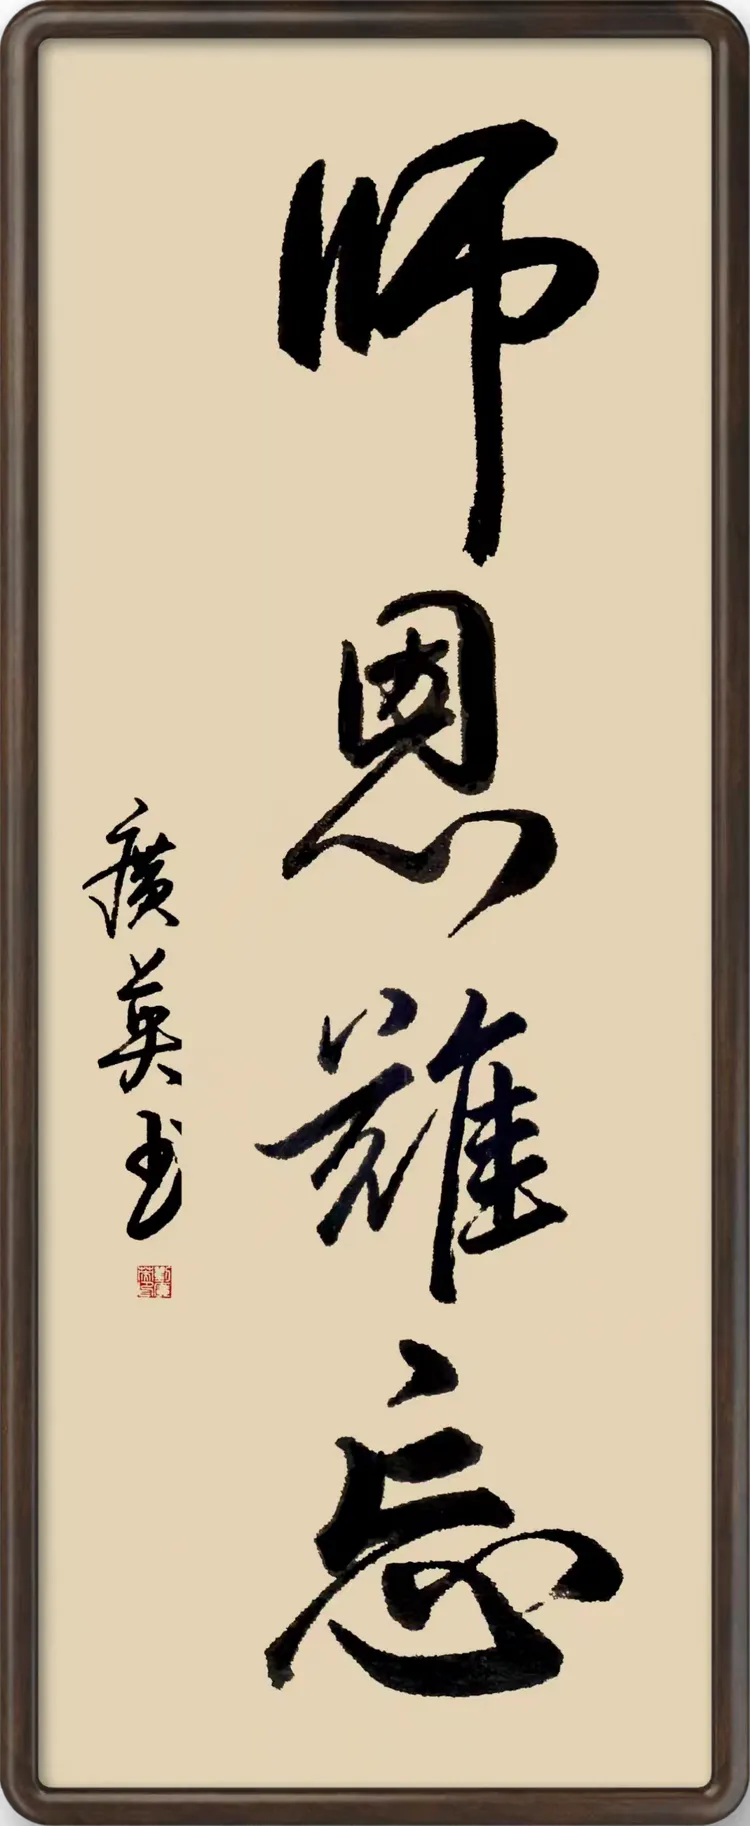 師恩難忘
廣英书